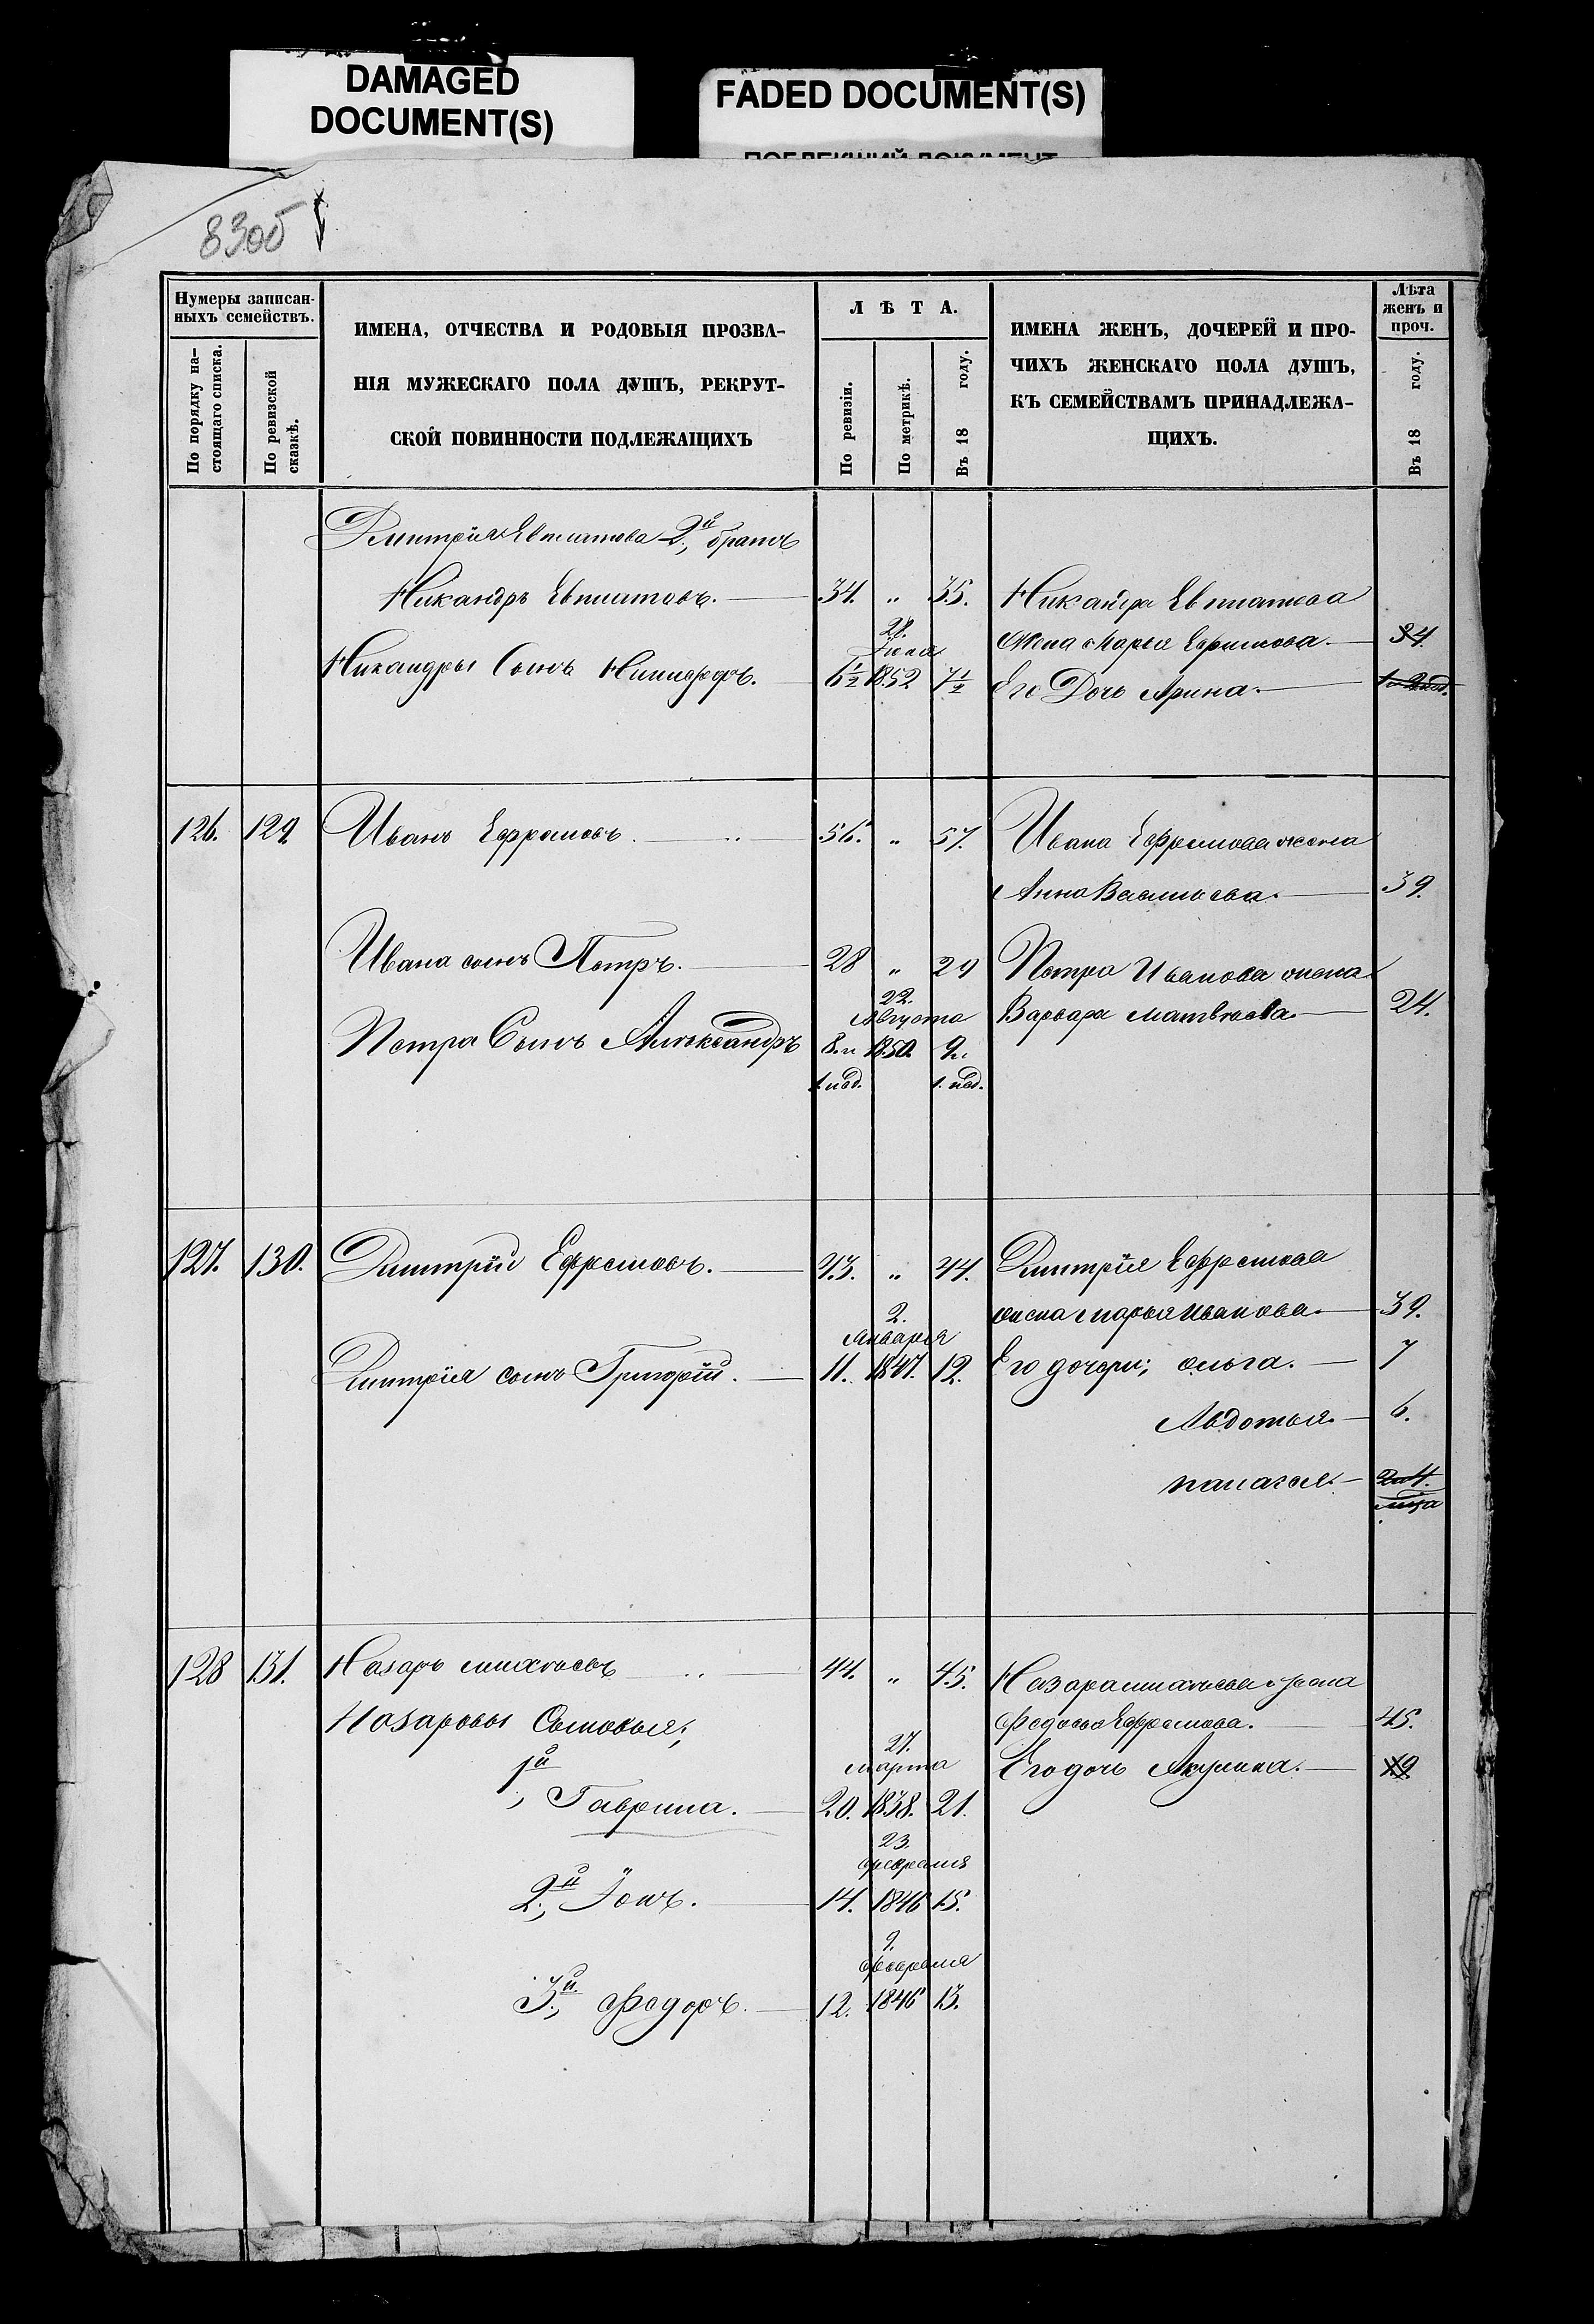 DAMAGED
DOCUMENT(S)
FADED DOCUMENT(S)
83об
Нумеры записан-
ныхъ семействъ.
По порядку на-
стоящаго списка.
По ревизской
сказкѣ.
ИМЕНА, ОТЧЕСТВА И РОДОВЫЯ ПРОЗВА-
НІЯ МУЖЕСКАГО ПОЛА ДУШЪ, РЕКРУТ-
СКОЙ ПОВИННОСТИ ПОДЛЕЖАЩИХЪ
ЛѢТА.
По ревизіи.
По метрикѣ.
Въ 18 году.
ИМЕНА ЖЕНЪ, ДОЧЕРЕЙ И ПРО-
ЧИХЪ ЖЕНСКАГО ПОЛА ДУШЪ,
КЪ СЕМЕЙСТВАМЪ ПРИНАДЛЕЖА-
ЩИХЪ.
Лѣта
женъ и
проч.
Въ 18 году.
Дмитрія Евпатова 2й братъ
Никандръ Евпатовъ. 34. „ 35. Никандра Евпатова
28.
Іюня
Жена Марья Ефимова. 34.
Никандры Сынъ Никифоръ. 6½ 1852 7½ Его Дочь Арина.
126. 129. Иванъ Ефремовъ. 56. „ 57. Ивана Ефремова жена
Анна Васильева. 39.
Ивана сынъ Петръ. 28 „ 29 Петра Иванова жена
22.
Августа
Варвара Матвѣева. 24.
Петра Сынъ Александръ 8. и 1850. 9. и
1. нед. 1. нед.
127. 130. Дмитрій Ефремовъ. 43. „ 44. Дмитрія Ефремова
2.
Января
жена Марья Иванова. 39.
Дмитрія сынъ Григорій. 11. 1847. 12. Его дочери; Ольга. 7
Авдотья. 6.
Палагея.
128 131. Назаръ Михѣевъ 44. „ 45. Назара Михѣева жена
Назаровы Сыновья; Федосья Ефремова. 45.
27.
Марта
Его дочь Акулина.
1й, Гаврила. 20. 1838. 21.
23.
Февраля
2й, Іонъ. 14. 1846 15.
9.
Февраля
3й, Федоръ. 12. 1846 13.